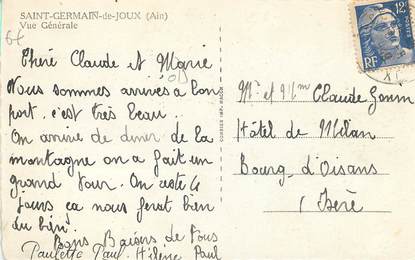 SAINT-GERMAIN-de-JOUX (Ain)
Vue Générale
Chéré Claude et Marie
Nous sommes arrivés a bon
port. c'est très beau.
On arrive de diner de la
montagne on a fait un
grand tour. On reste 4
jours ça nous ferat bien
du bien.
Bons Baisers de tous
Paulette Paul. Hélène Paul
Mr et Mme Claude
Hôtel de Milan
Bourg d'Oisans
(Isère)
12F
RF